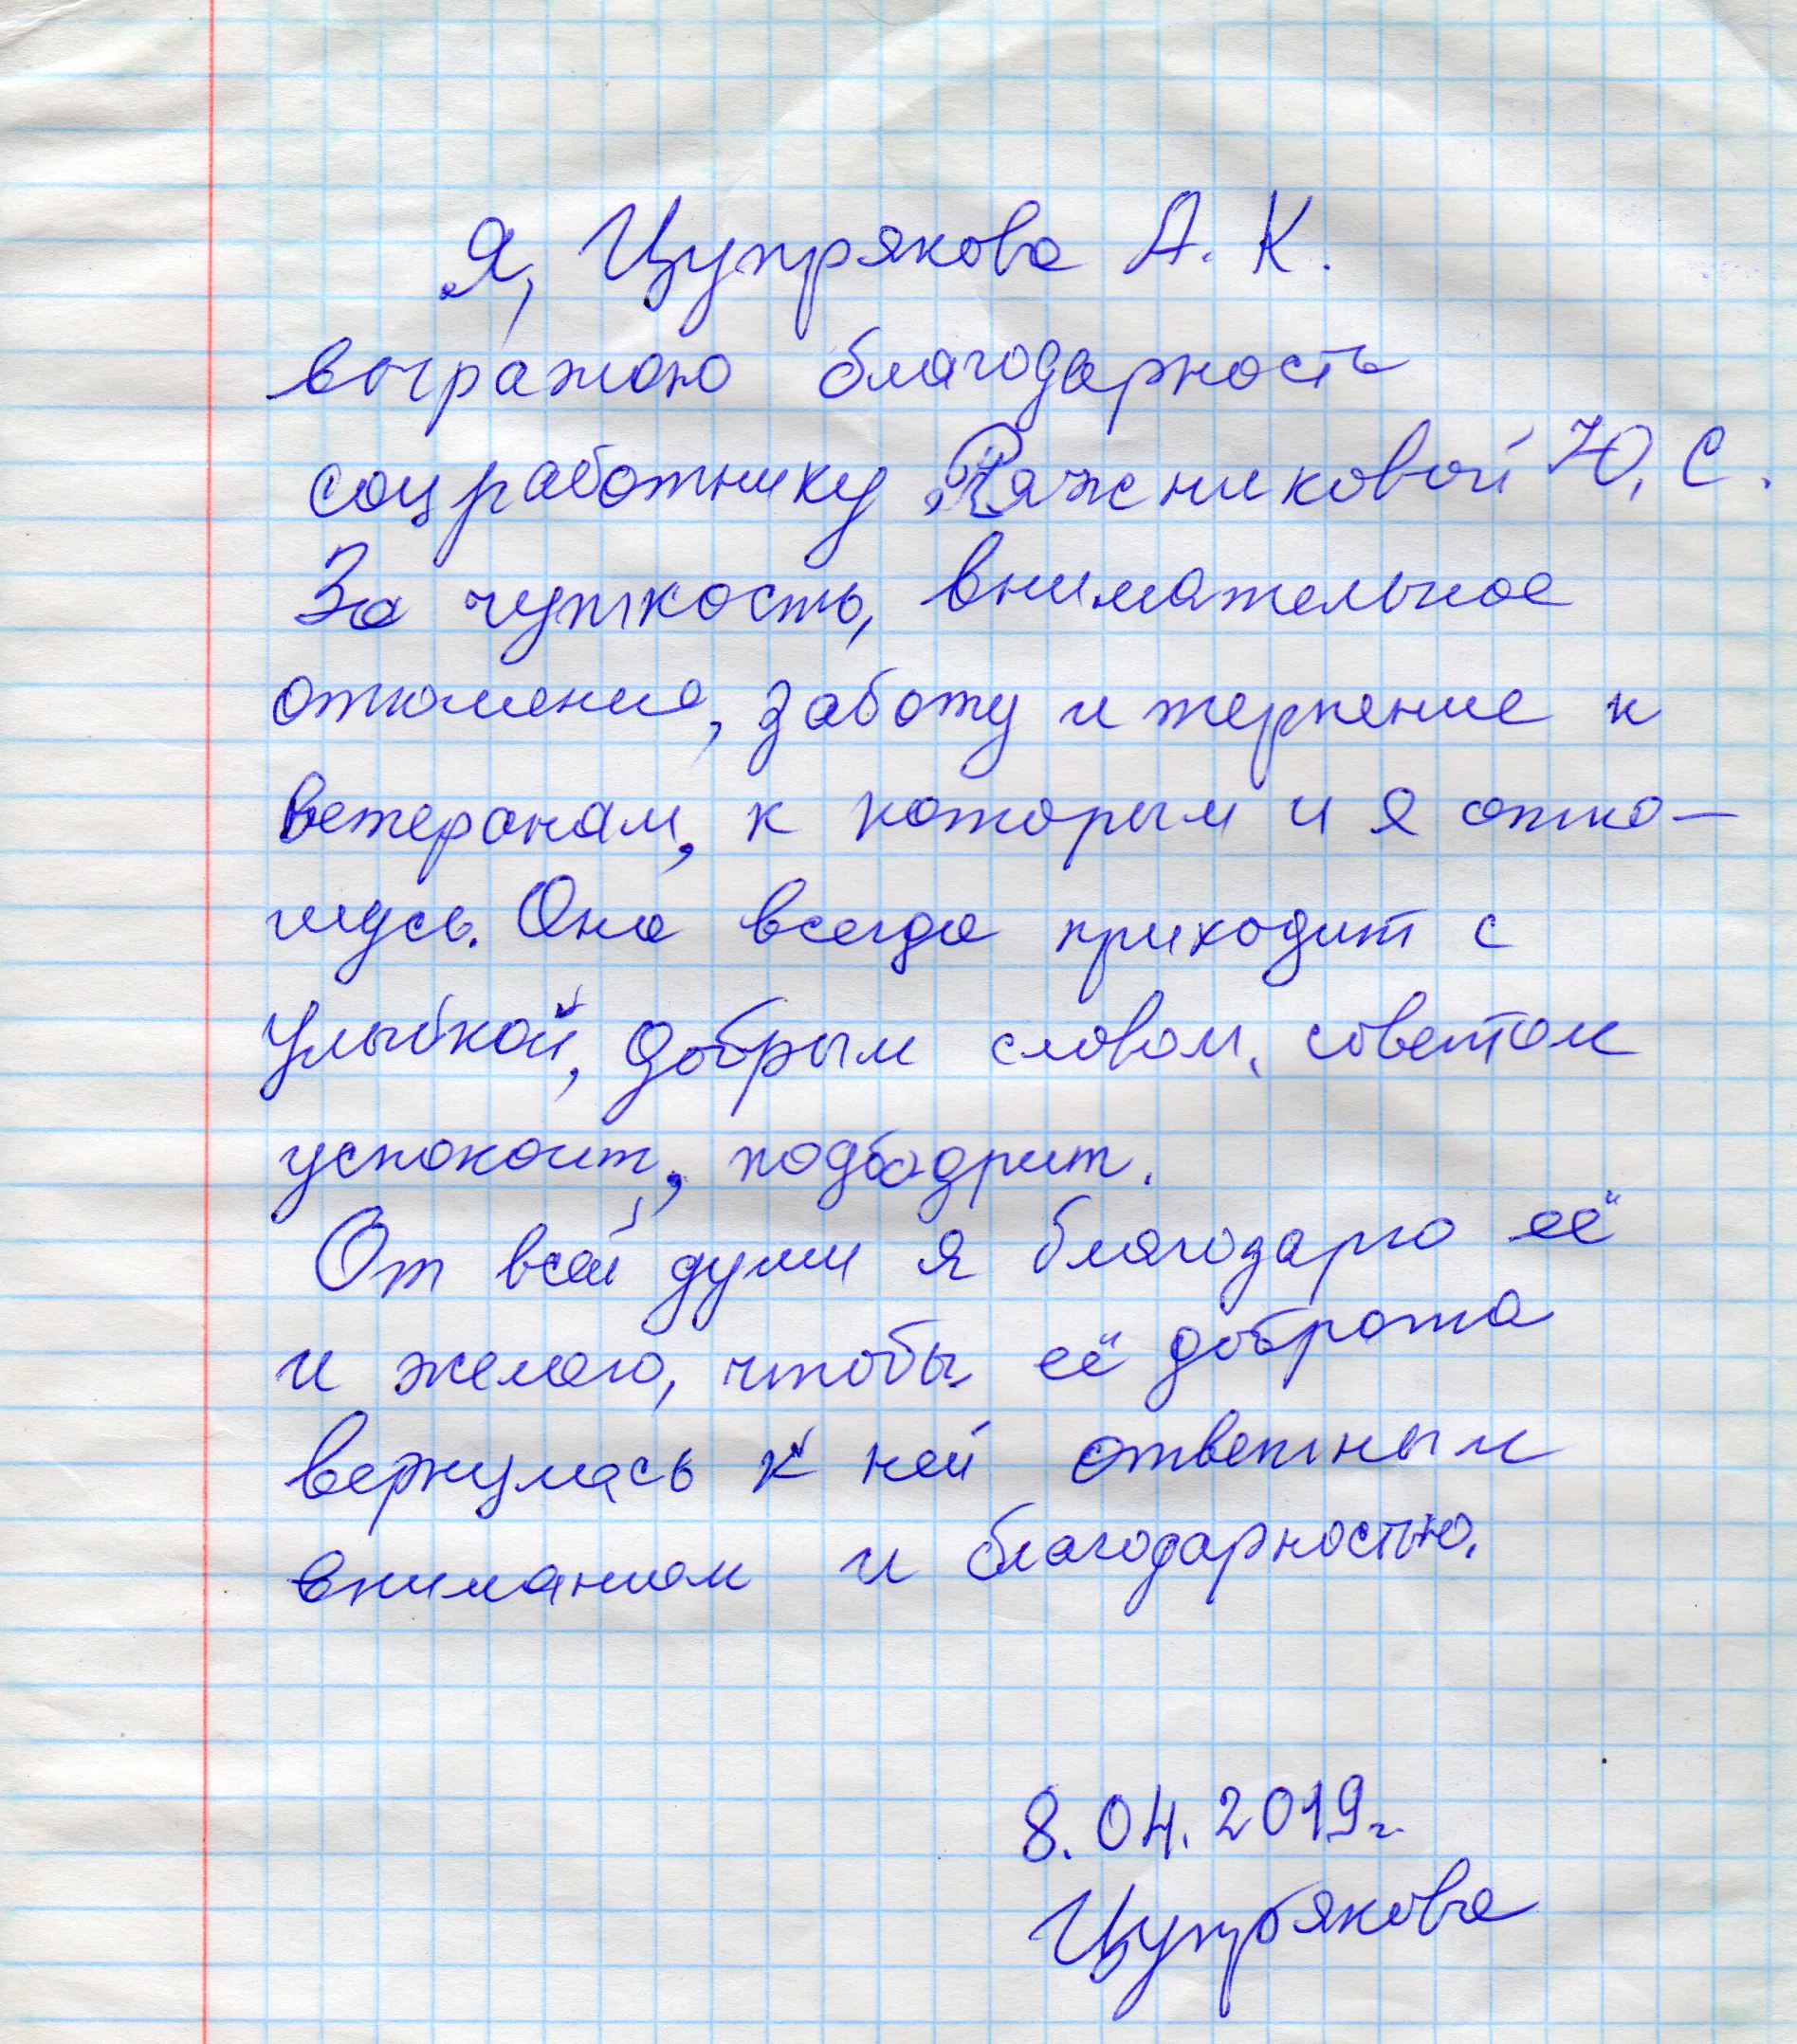 Я, Цупрякова А. К.
выражаю благодарность
соцработнику Ряжниковой Ю. С.
За чуткость, внимательное
отношение, заботу и терпение к
ветеранам, к которым и я отно-
шусь. Она всегда приходит с
улыбкой, добрым словом, советом
успокоит, подбодрит.
От всей души я благодарю её
и желаю, чтобы её доброта
вернулась к ней ответным
вниманием и благодарностью.
8.04.2019г.
Цупрякова